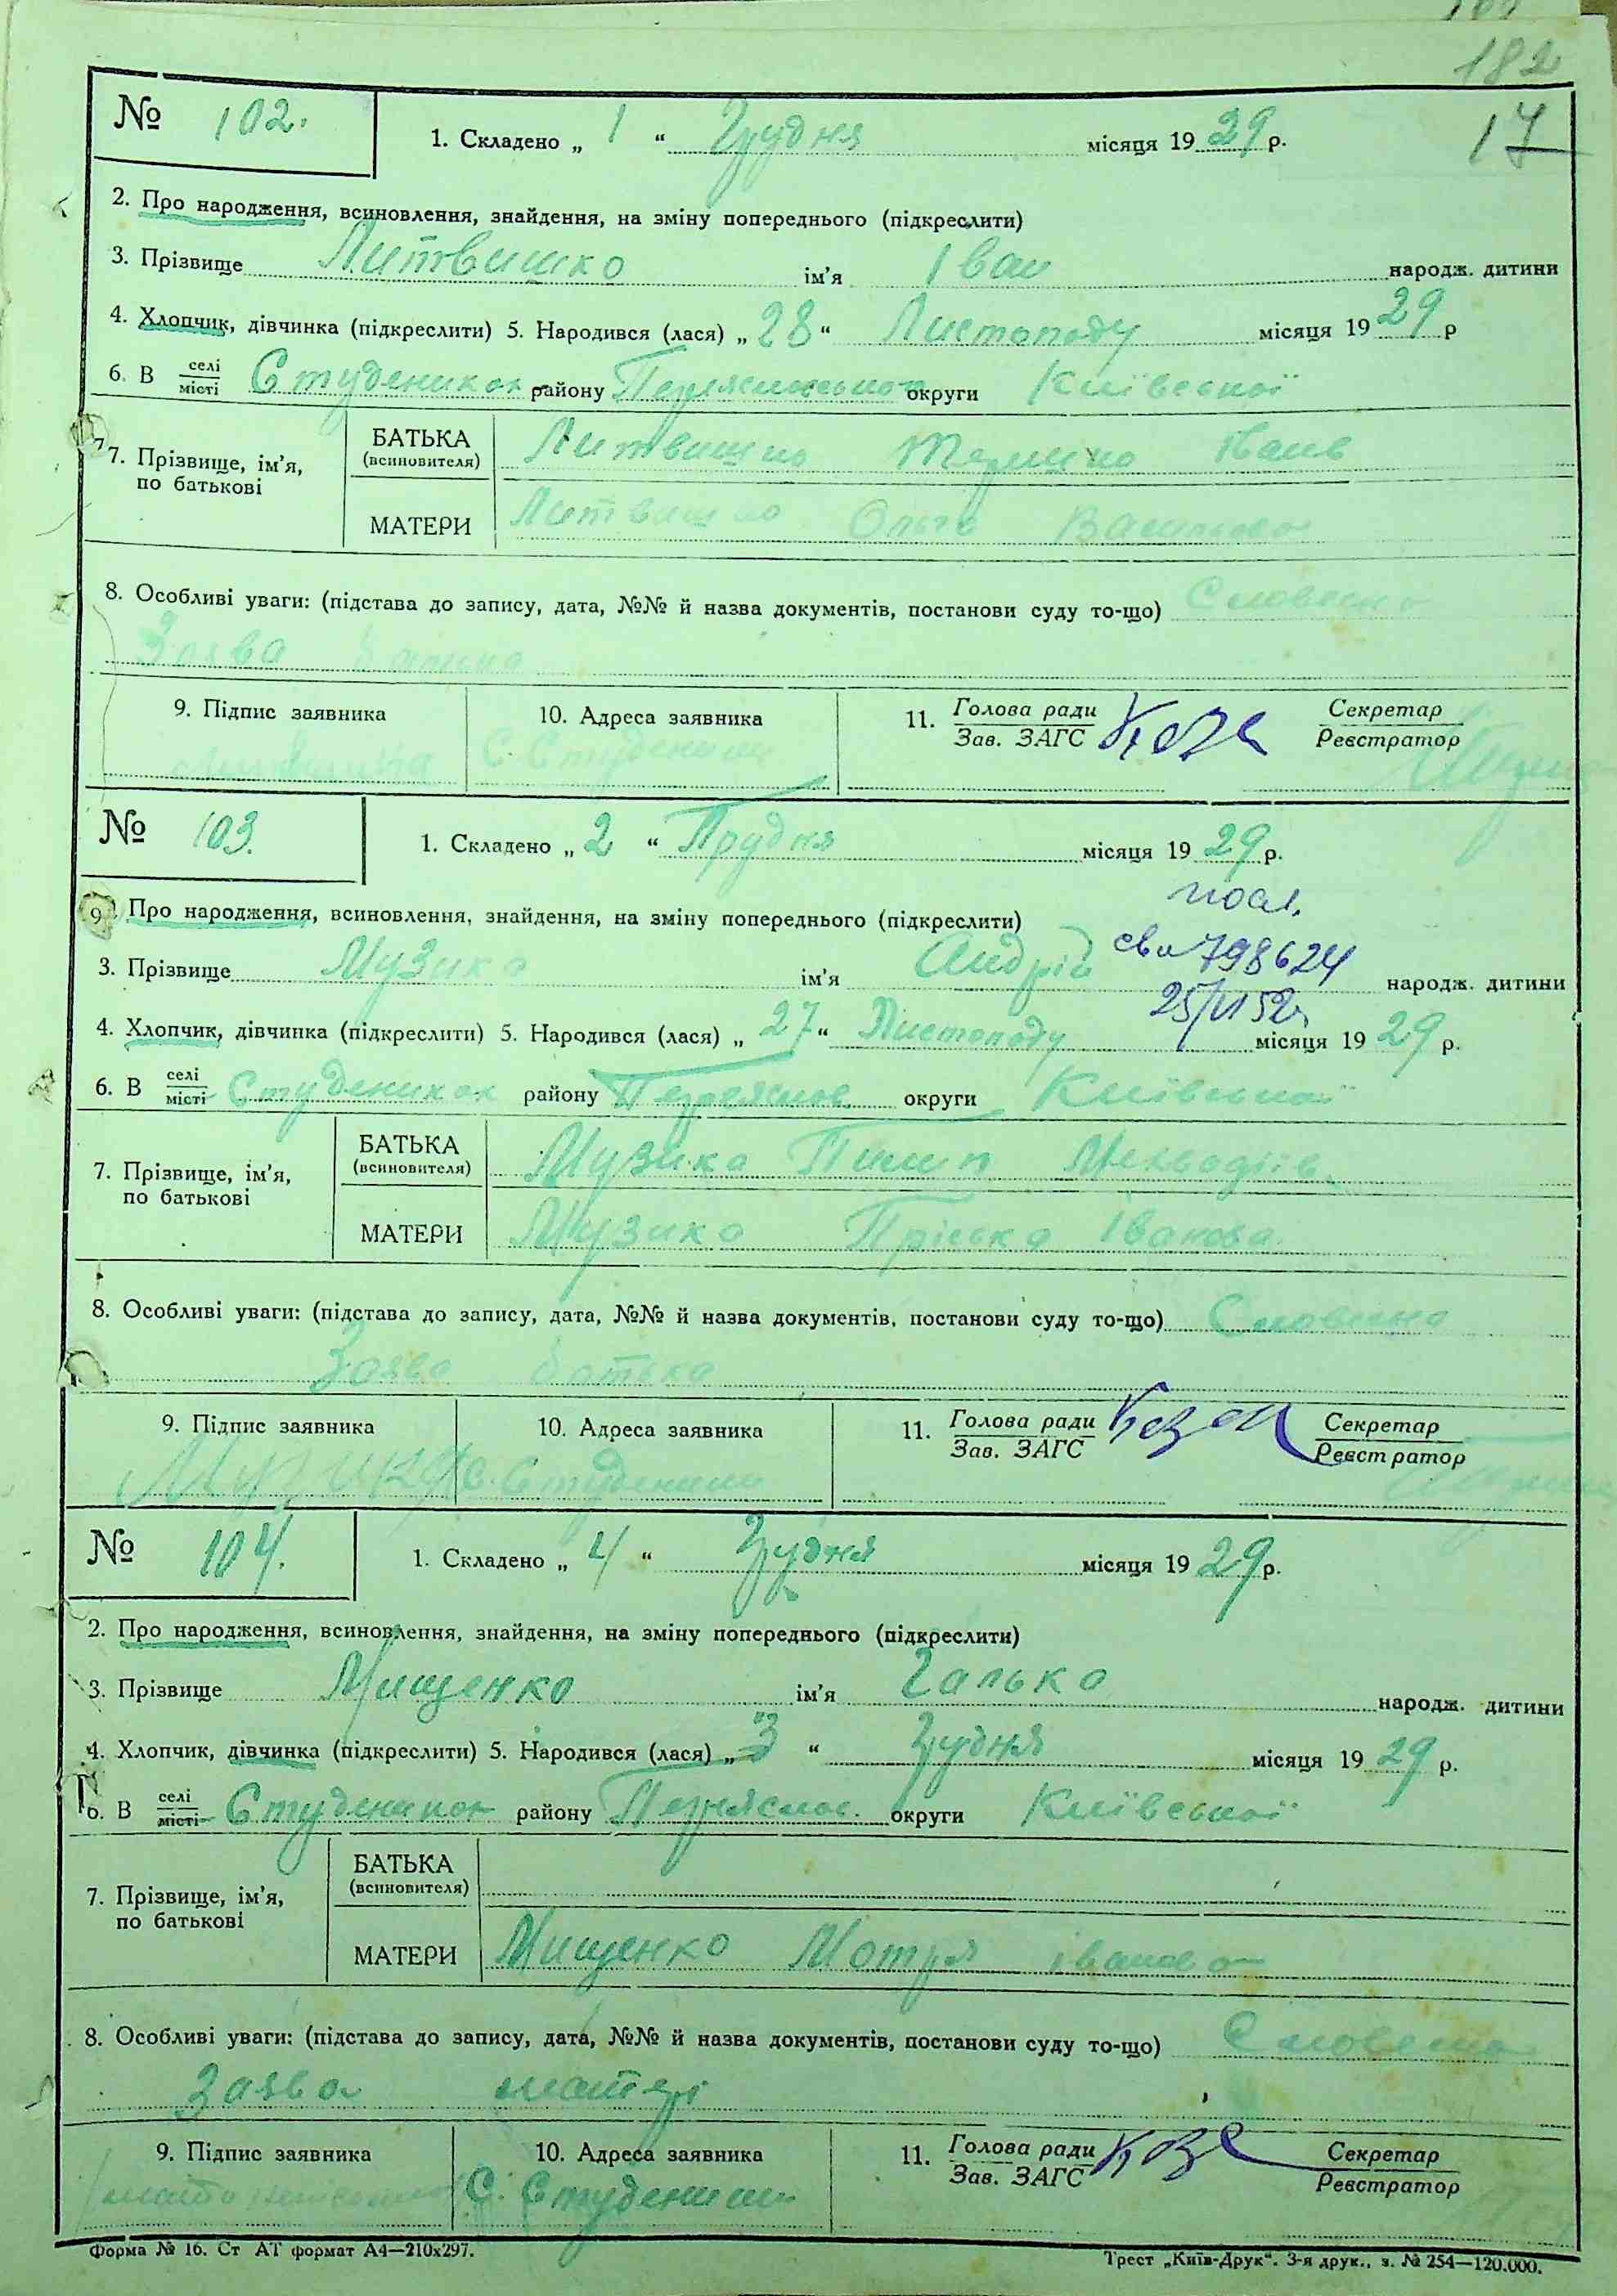 182
17
№ 102. 1. Складено „ 1 “ Грудня місяця 19 29 р.
2. Про народження, всиновлення, знайдення, на зміну попереднього (підкреслити)
3. Прізвище Литвишко ім’я Іван народж. дитини
4. Хлопчик, дівчинка (підкреслити) 5. Народився (лася) „ 28 “ Листопаду місяця 19 29 р
6. В селі місті Студениках району округи Київської
7. Прізвище, ім’я, по батькові
БАТЬКА (всиновителя) Литвишко Іванів
МАТЕРИ Литвишко Ольга
8. Особливі уваги: (підстава до запису, дата, №№ й назва документів, постанови суду то-що) Словесна
Заява батька
9. Підпис заявника 10. Адреса заявника 11. Голова ради Зав. ЗАГС Секретар Реєстратор
С Студеники
№ 103. 1. Складено „ 2 “ Грудня місяця 19 29 р.
2. Про народження, всиновлення, знайдення, на зміну попереднього (підкреслити)
798624
3. Прізвище Музика ім’я Андрій народж. дитини
4. Хлопчик, дівчинка (підкреслити) 5. Народився (лася) „ 27 “ Листопаду місяця 19 29 р.
6. В селі місті Студениках району Переяслов. округи Київської
7. Прізвище, ім’я, по батькові
БАТЬКА (всиновителя) Музика Пилип Мехводіїв
МАТЕРИ Музика Пріська Іванова
8. Особливі уваги: (підстава до запису, дата, №№ й назва документів, постанови суду то-що) Словесна
Заява батька
9. Підпис заявника 10. Адреса заявника 11. Голова ради Зав. ЗАГС Секретар Реєстратор
С. Студеники
№ 104. 1. Складено „ 4 “ Грудня місяця 19 29 р.
2. Про народження, всиновлення, знайдення, на зміну попереднього (підкреслити)
3. Прізвище Мищенко ім’я Галька народж. дитини
4. Хлопчик, дівчинка (підкреслити) 5. Народився (лася) „ 3 “ Грудня місяця 19 29 р.
6. В селі місті Студениках району Переяслов. округи Київської
7. Прізвище, ім’я, по батькові
БАТЬКА (всиновителя)
МАТЕРИ Мищенко Мотря Іванова
8. Особливі уваги: (підстава до запису, дата, №№ й назва документів, постанови суду то-що) Словесна
Заява матері
9. Підпис заявника 10. Адреса заявника 11. Голова ради Зав. ЗАГС Секретар Реєстратор
С. Студеники
Форма № 16. Ст АТ формат А4—210х297. Трест „Київ-Друк“. 3-я друк., з. № 254—120.000.